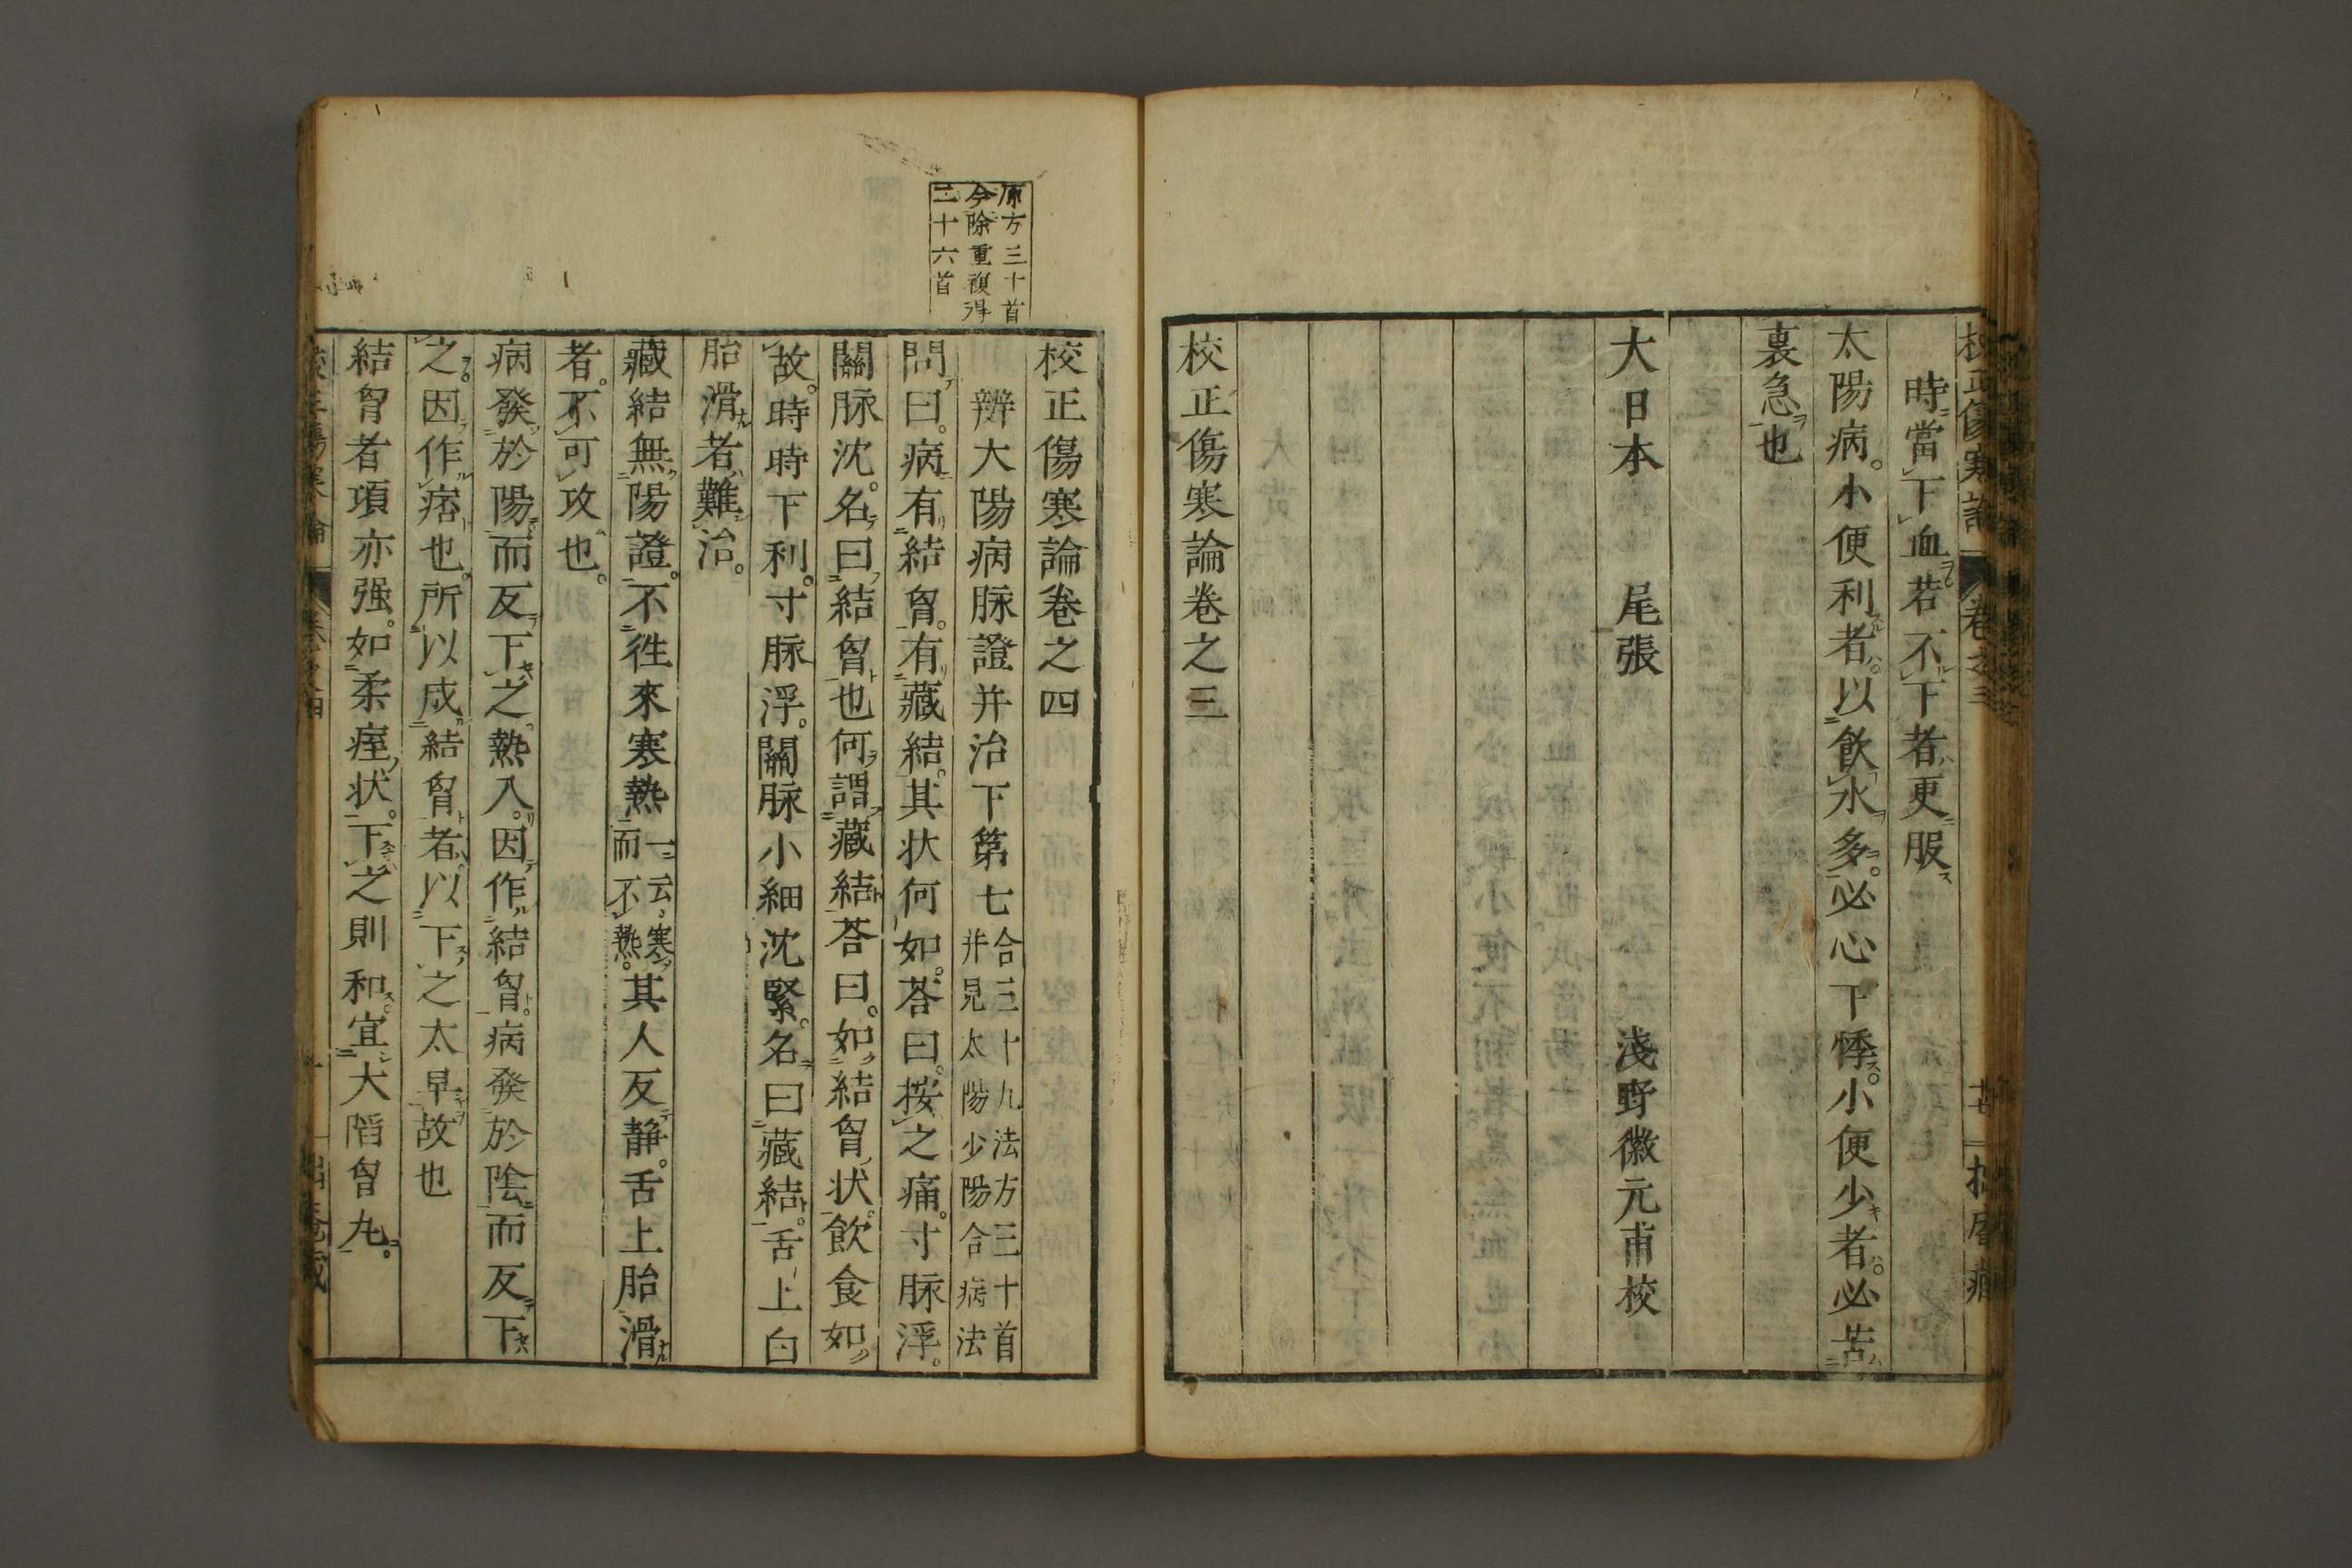 時當下血若不下者更服
太陽病小便利者以飲水多必心下悸小便少者必苦
裏急也
大日本 尾張 淺野徽元甫校
校正傷寒論卷之三
原方三十首
今除重複得
二十六首
校正傷寒論卷之四
辨大陽病脉證并治下第七 合三十九法方三十首 并見太陽少陽合病法
問曰。病有結胷。有藏結。其状何如。荅曰。按之痛。寸脉浮。
關脉沈。名曰結胷也何謂藏結荅曰。如結胷状。飲食如
故。時時下利。寸脉浮。關脉小細沈緊。名曰藏結。舌上白
胎滑者難治。
藏結無陽證。不徃來寒熱 一云寒而不熱。 其人反静。舌上胎滑
者。不可攻也。
病發於陽而反下之。熱入。因作結胷。病發於陰而反下
之。因作痞也。所以成結胷者。以下之太早故也
結胷者項亦强。如柔痓状。下之則和。宜大陷胷丸。